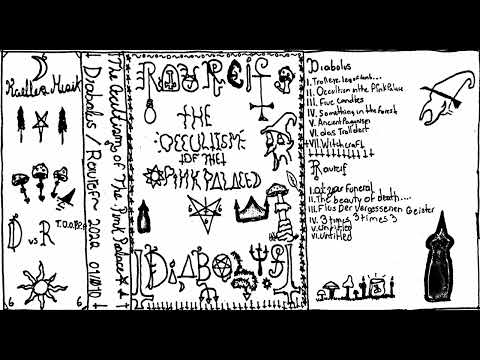 Kaellermusik
T.O.O.P.P
D vs R
6 6 6
The Occultism of The Pink Palace
Diabolus / Raureif 2022 01/010
RAUREIF
THE
OCCULTISM
OF THE
PINK PALACE
DiABOLUS
Diabolus
II. Occultism in the Pink Palace
III. Five Candles
IV. Something in the Forest
V. Ancient Paganism
VI. das Trolldorf
VII. Witchcraft
Raureif
I. at your Funeral
II. The beauty of death....
III. Fluss Der Vergessenen Geister
IV. 3 times, 3 times 3
V. Untitled
VI. Untitled